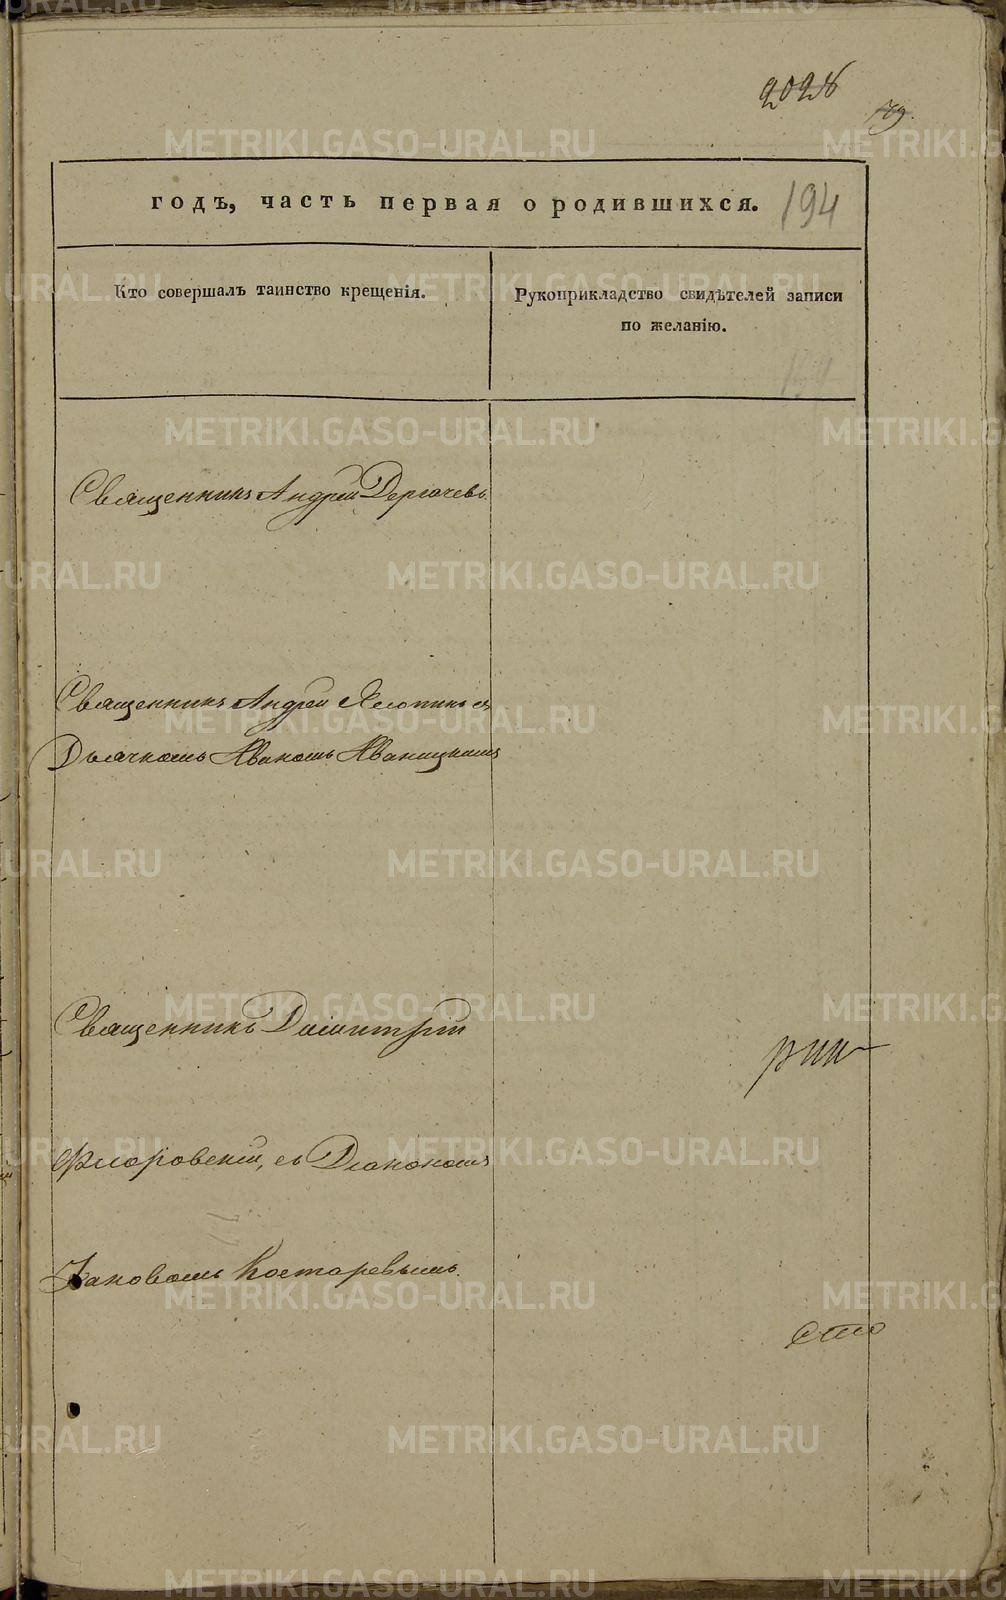 2028
179.
годъ, часть первая о родившихся. 194
Кто совершалъ таинство крещенія.
Рукоприкладство свидѣтелей записи
по желанію.
Священникъ Андрей Дергачевъ.
Священникъ Андрей Хлопинъ съ
Дьячкомъ Иваномъ Иваницкимъ
Священникъ Димитрій
Флоровскій, съ Діакономъ
Іаковомъ Костаревымъ.
сто
METRIKI.GASO-URAL.RU